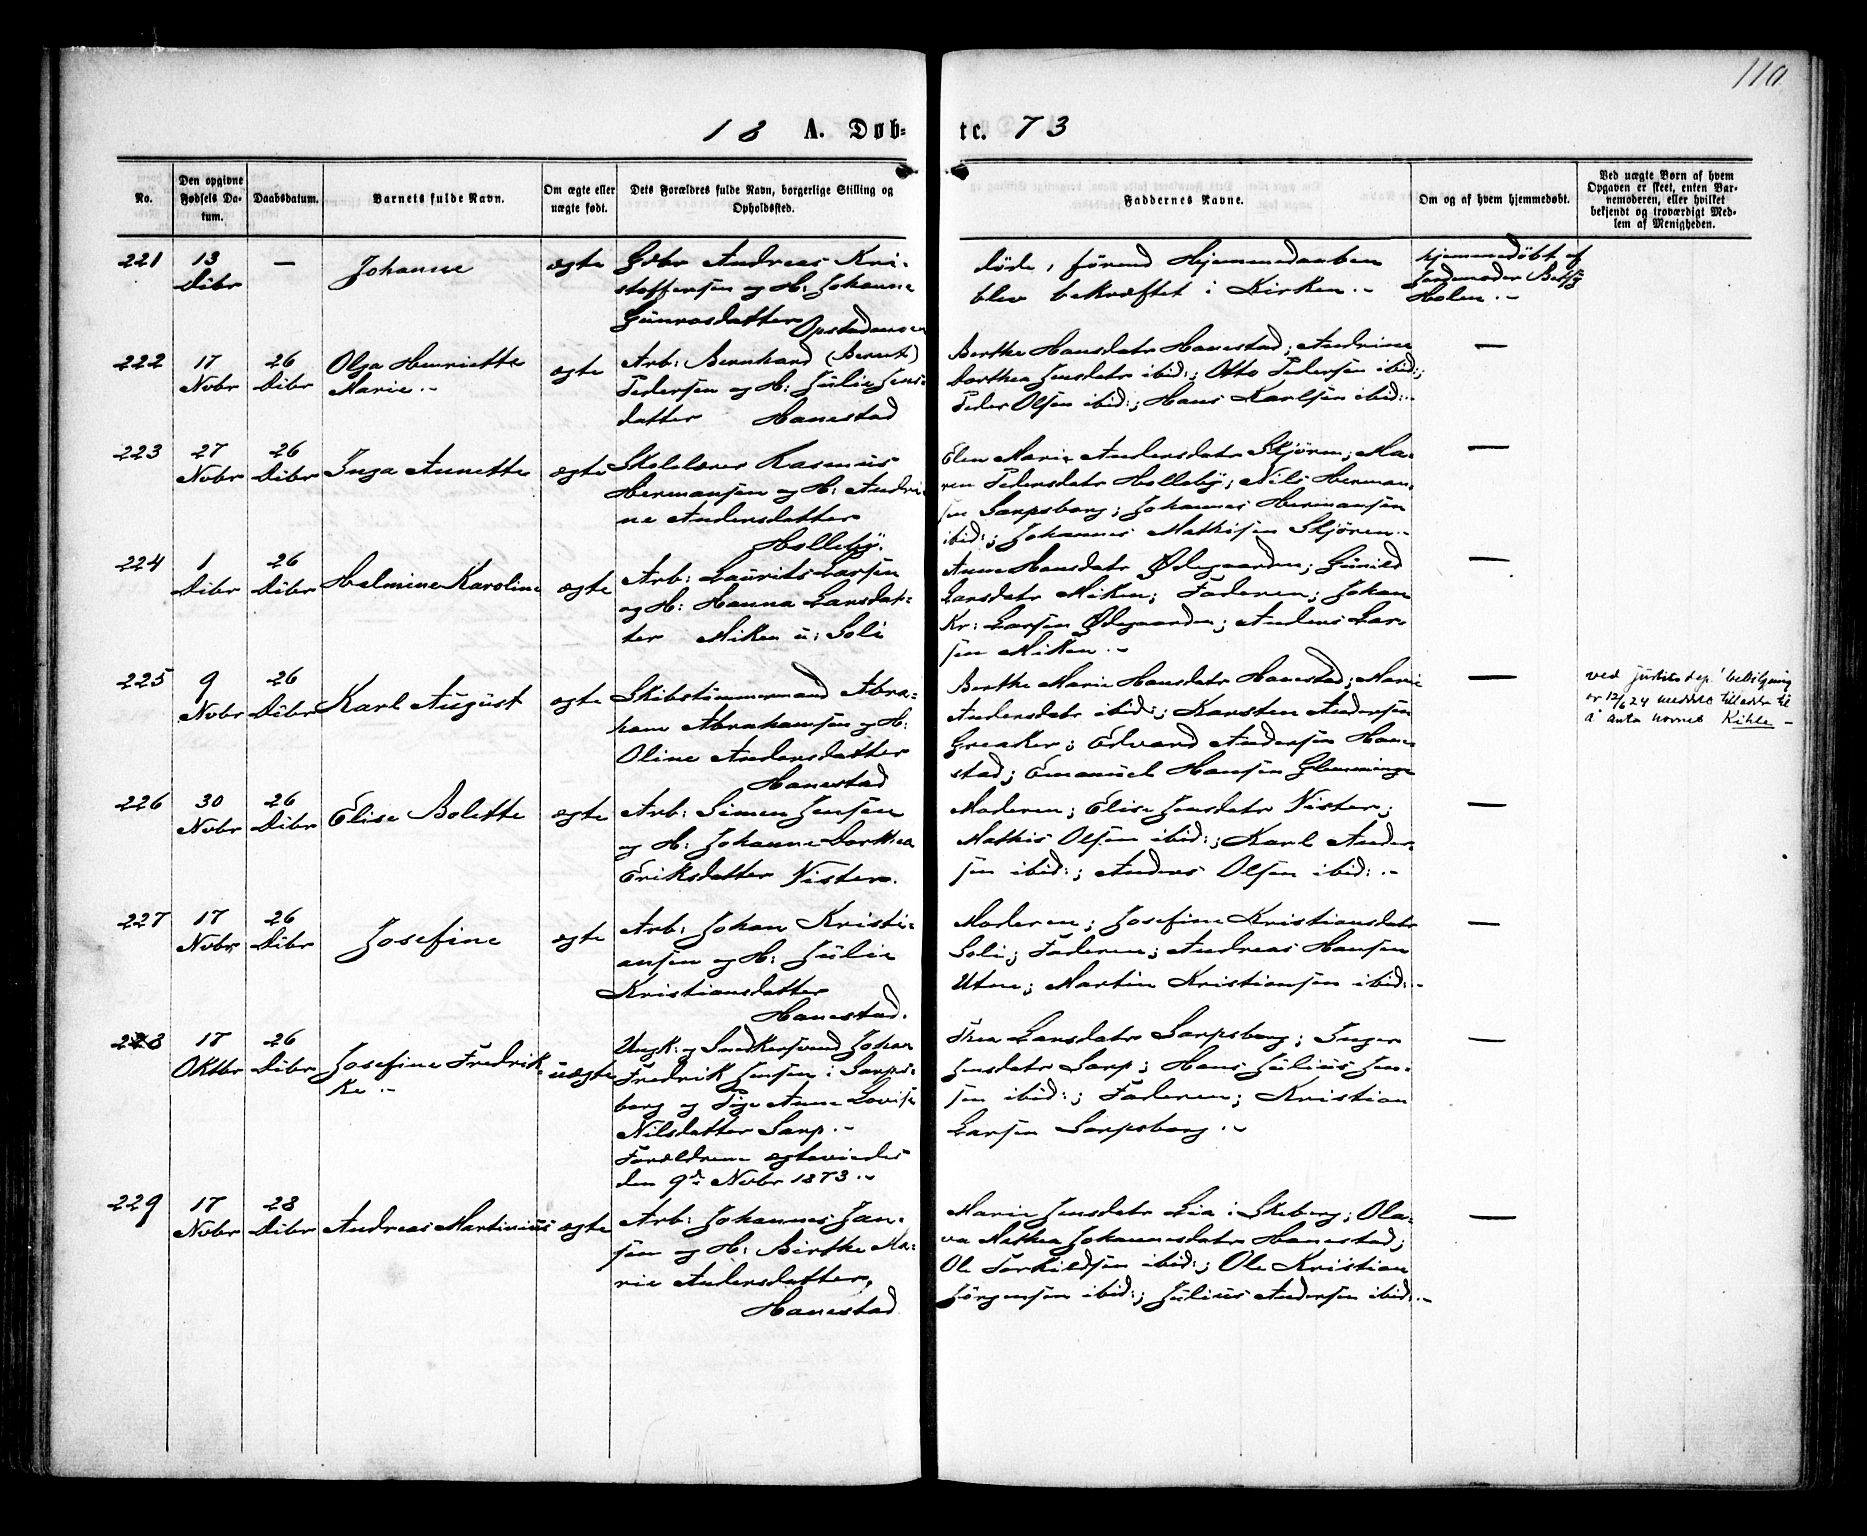 110
18 A. Døb- te. 73
No.
Den opgivne Fødsels Datum.
Daabsdatum.
Barnets fulde Navn.
Om ægte eller uægte født.
Dets Forældres fulde Navn, borgerlige Stilling og Opholdssted.
Faddernes Navne.
Om og af hvem hjemmedøbt.
Ved uægte Børn af hvem Opgaven er skeet, enten Barnemoderen, eller hvilket bekjendt og troværdigt Medlem af Menigheden.
221
13 Dcbr
—
Johanne
ægte
Gbr Andreas Kri-
stoffersen og H: Johanne
Gunnersdatter
døde, förend Hjemmedaaben
blev bekræftet i Kirken.-
Hjemmedöbt af
Jordemoder
Holen.-
222
17 Nobr
26 Dcbr
Olga Henriette
Marie.-
ægte
Arb: Bernhard (Bernt)
Pedersen og H: Julie Jens-
datter Hanestad
Berthe Hansdatr Hanestad; Andrine
Dorthea Jensdatr ibid:; Otto Pedersen ibid:;
Peder Olsen ibid:; Hans Karlsen ibid:-
—
223
27 Nobr
26 Dcbr
Inga Annette
ægte
Skolelærer Rasmus
Hermansen og H: Andri-
ne Andersdatter
Holleby.
Elen Marie Andersdatr Skjören; Ma-
ren Pedersdatr Holleby; Nils Herman-
sen Sarpsborg; Johannes Hermansen
ibid:; Johannes Mathisen Skjören.-
—
224
1 Dcbr
26 Dcbr
Helmine Karoline
ægte
Arb: Laurits Larsen
og H: Hanna Larsdat-
ter Miken u: Soli
Anne Hansdatr Ødegaarden; Gunild
Larsdatr Miken; Faderen; Johan
Kr: Larsen Ødegaarden; Anders Lar-
sen Miken.-
—
225
9 Nobr
26 Dcbr
Karl August
ægte
Skibstömmermand Abra-
ham Abrahamsen og H:
Oline Andersdatter
Hanestad
Berthe Marie Hansdatr Hanestad; Marie
Andersdatr ibid:; Karsten Andersen
Greaker; Edvard Andersen Hane-
stad; Emanuel Hansen Glemminge
—
ved justitsdep' bevilgning
av 12/6 24 meddelt tilladelse til
å anta navnet Kihle -
226
30 Nobr
26 Dcbr
Elise Bolette
ægte
Arb: Simen Jensen
og H: Johanne Dorthea
Eriksdatter Nister.
Moderen; Elise Jensdatr Nister;
Mathis Olsen ibid:; Karl Ander-
sen ibid:; Anders Olsen ibid:-
—
227
17 Nobr
26 Dcbr
Josefine
ægte
Arb: Johan Kristi-
ansen og H: Julie
Kristiansdatter
Hanestad.
Moderen; Josefine Kristiansdatr
Soli; Faderen; Andreas Hansen
Utne; Martin Kristiansen ibid:-
—
228
17 Oktbr
26 Dcbr
Josefine Fredrik-
ke.-
uægte
Ungk: og Snedkersvend Johan
Fredrik Jensen i Sarps-
borg og Pige Anne Lovise
Nilsdatter Sarp.-
Forældrene ægteviedes
den 9de Nobr 1873.-
Thea Larsdatr Sarpsborg; Inger
Jensdatr Sarp; Hans Julius Jen-
sen ibid:; Faderen; Kristian
Larsen Sarpsborg.-
—
229
17 Nobr
28 Dcbr
Andreas Martinius
ægte
Arb: Johannes Jan-
sen og H: Birthe Ma-
rie Andersdatter,
Hanestad
Marie Jensdatr Lia i Skeberg; Ola-
va Mathea Johannesdatr Hanestad;
Ole Torkildsen ibid:; Ole Kristian
Jörgensen ibid:; Julius Andersen ibid:-
—